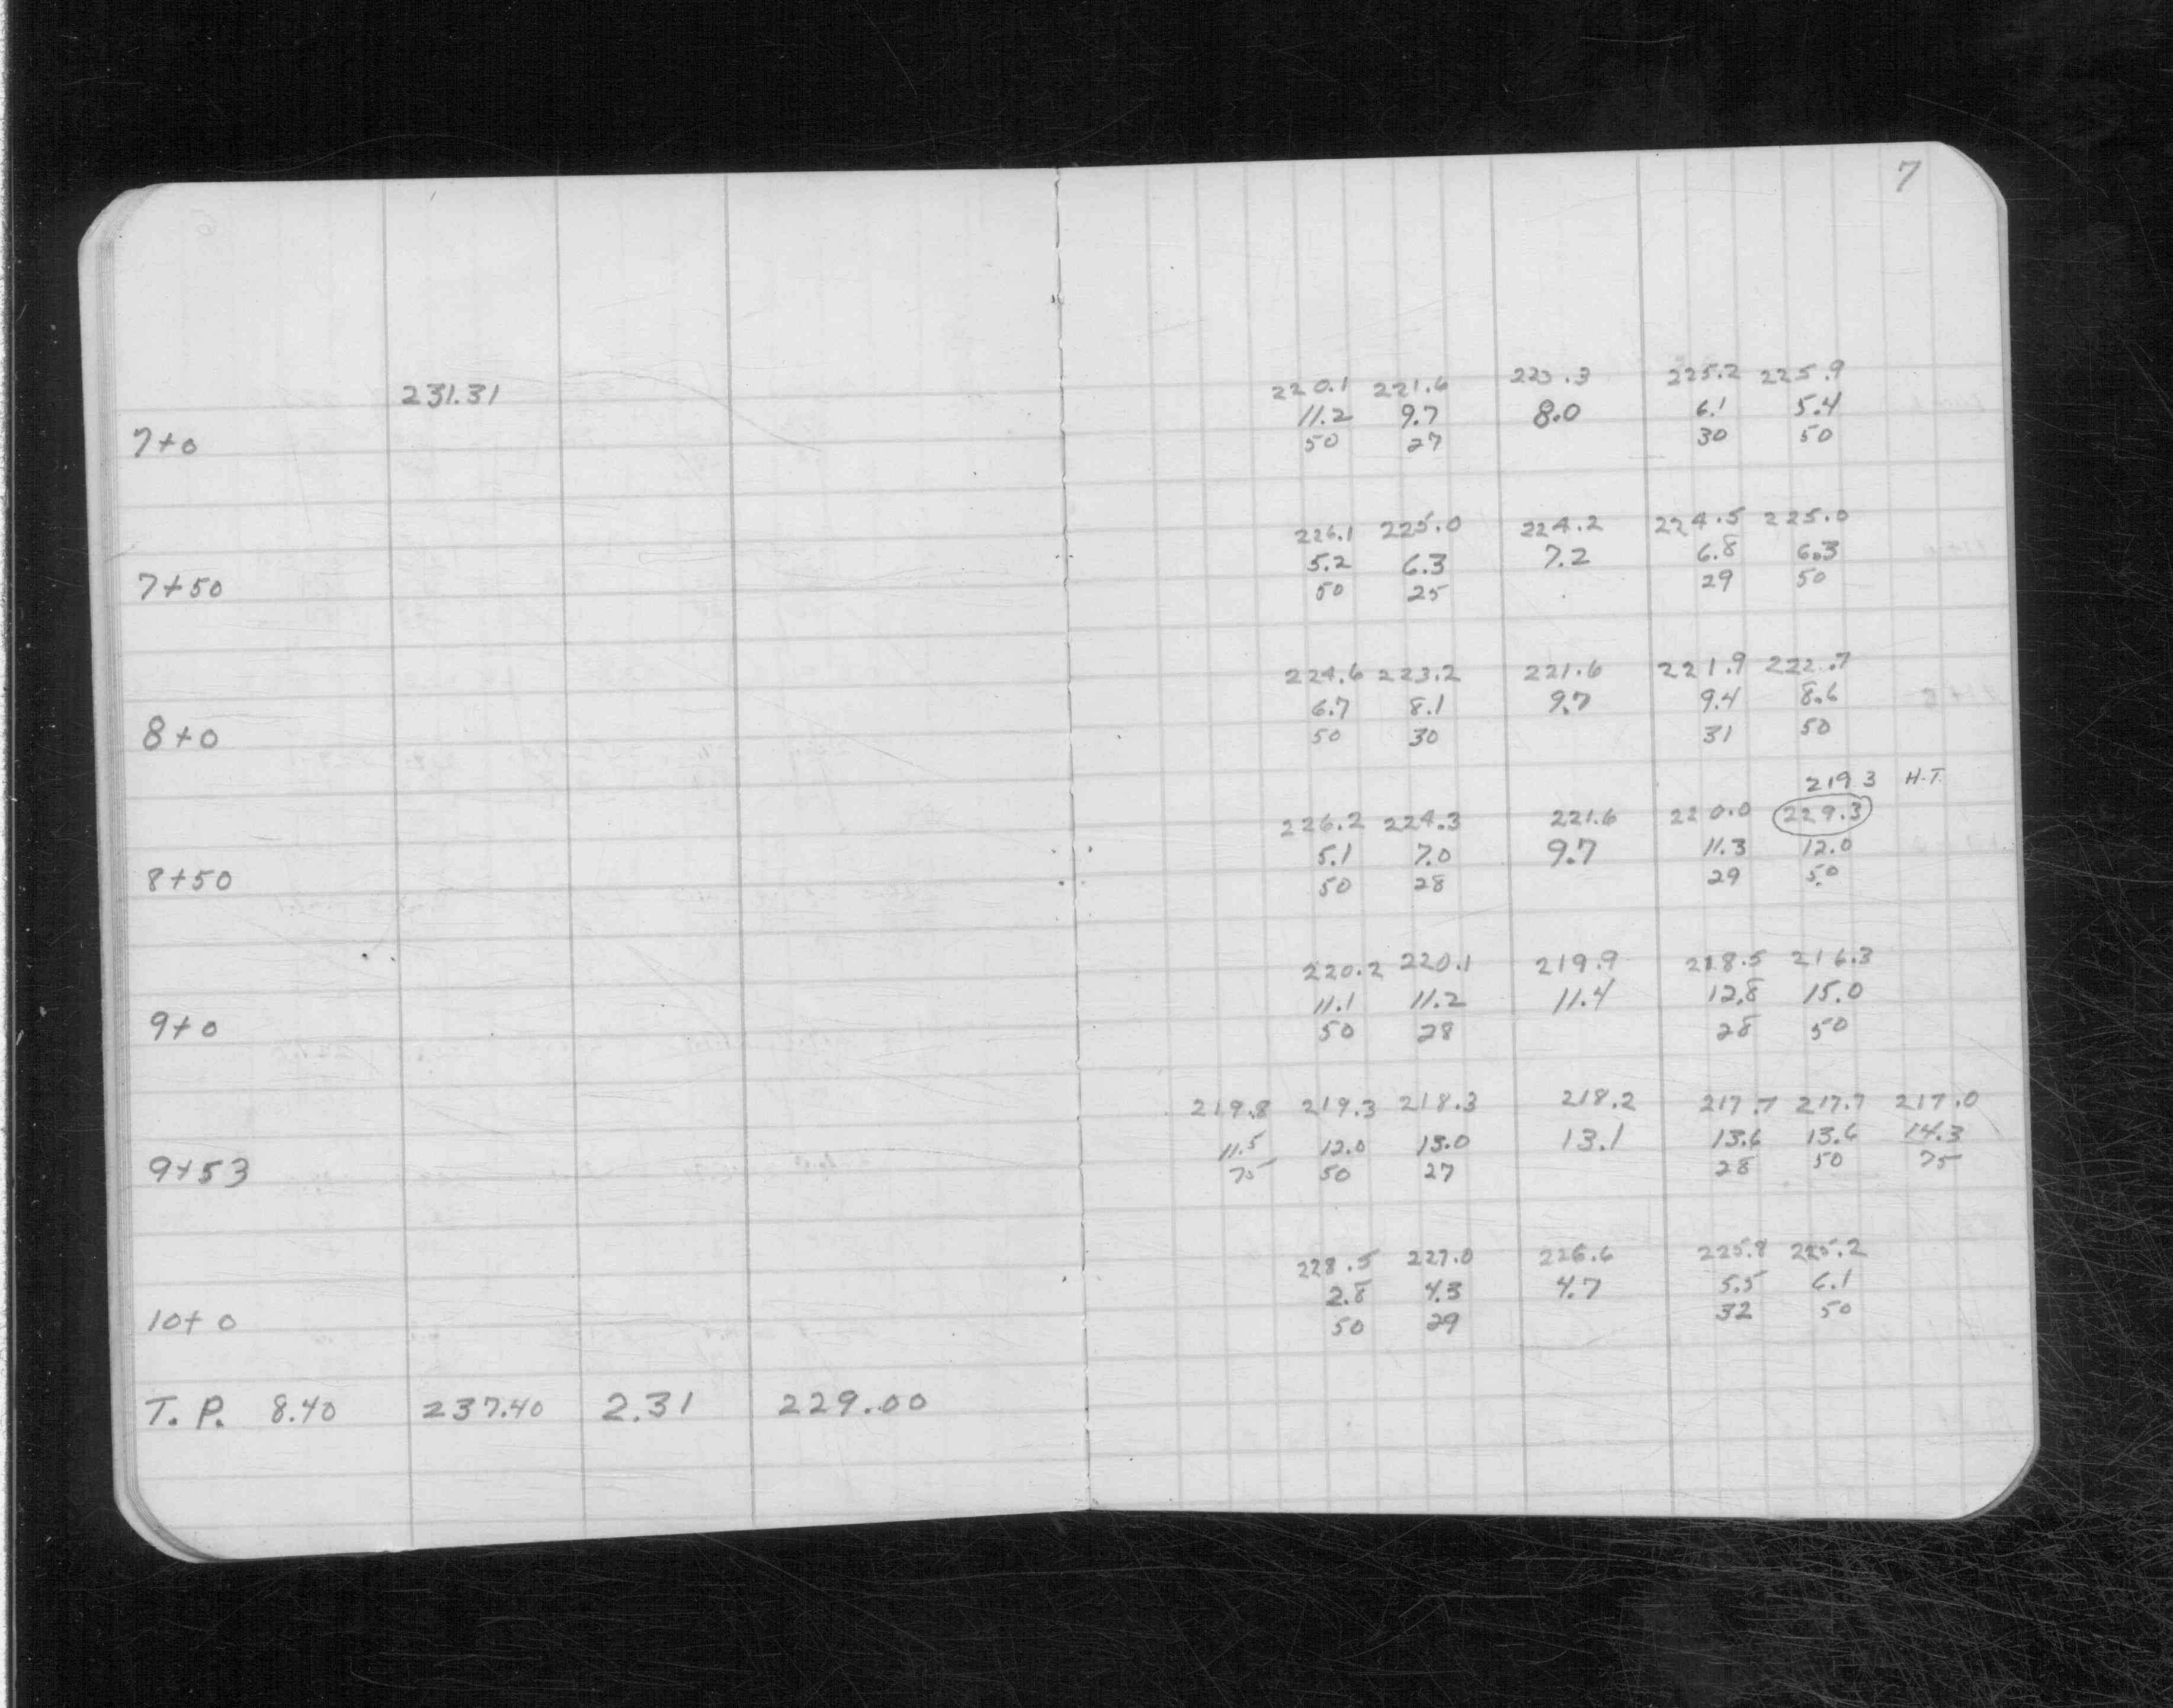 7
231.31 220.1 221.6 223.3 225.2 225.9
11.2 9.7 8.0 6.1 5.4
7+0 50 27 30 50
226.1 225.0 224.2 224.5 225.0
5.2 6.3 7.2 6.8 6.3
7+50 50 25 29 50
224.6 223.2 221.6 221.9 222.7
6.7 8.1 9.7 9.4 8.6
8+0 50 30 31 50
219.3 H.T.
226.2 224.3 221.6 220.0 229.3
5.1 7.0 9.7 11.3 12.0
8+50 50 28 29 50
220.2 220.1 219.9 218.5 216.3
11.1 11.2 11.4 12.8 15.0
9+0 50 28 28 50
219.8 219.3 218.3 218.2 217.7 217.7 217.0
11.5 12.0 13.0 13.1 13.6 13.6 14.3
9+53 75 50 27 28 50 75
228.5 227.0 226.6 225.8 225.2
2.8 4.3 4.7 5.5 6.1
10+0 50 29 32 50
T. P. 8.40 237.40 2.31 229.00